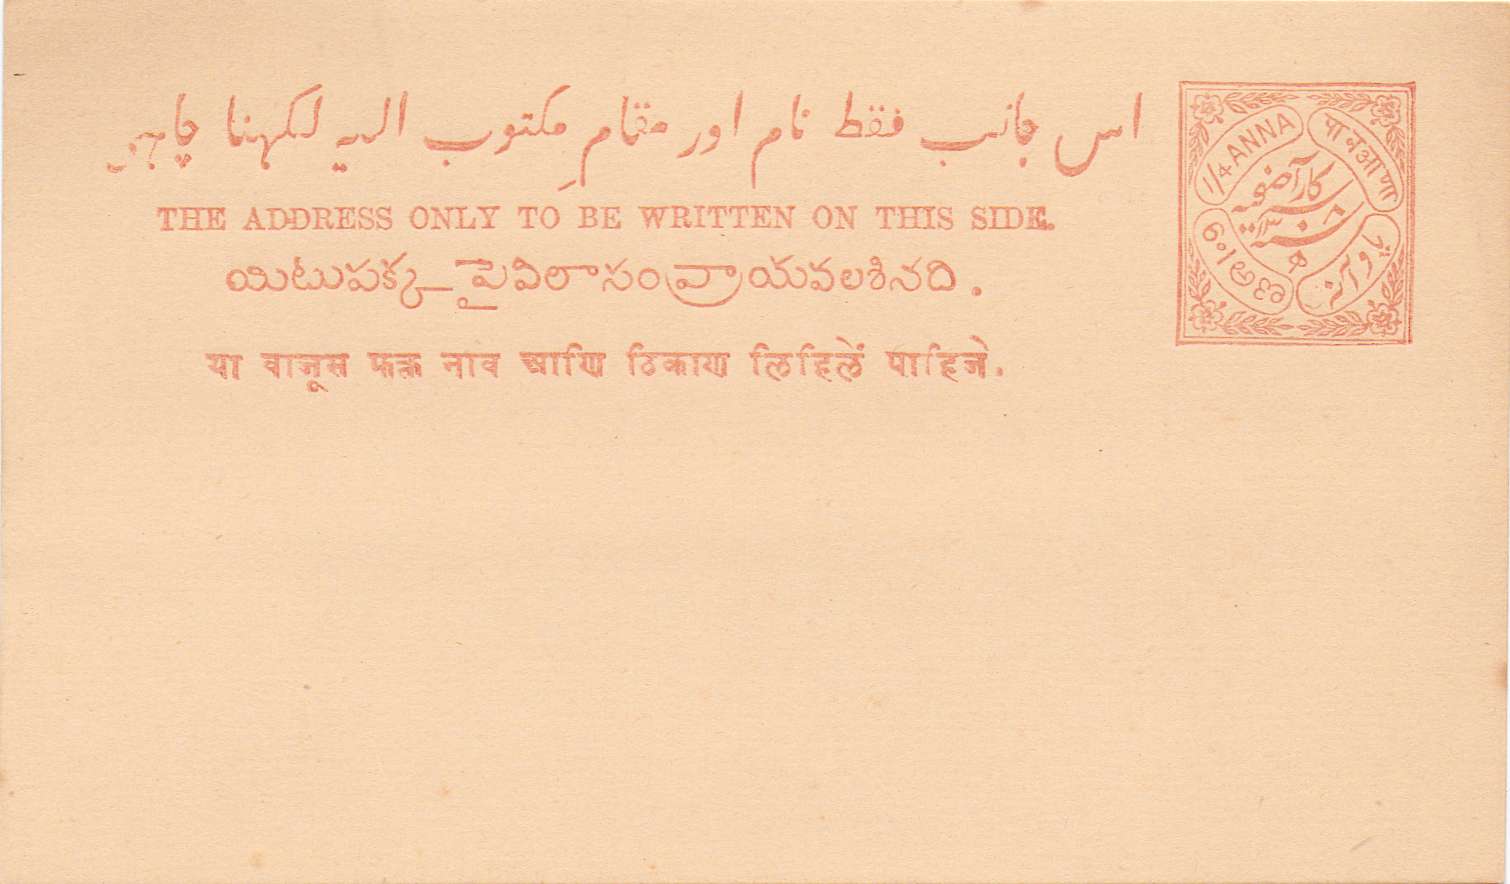 اس جانب فقط نام اور مقامِ مکتوب الیہ لکہنا چاہیٔے
THE ADDRESS ONLY TO BE WRITTEN ON THIS SIDE.
యిటుపక్క పైవిలాసం వ్రాయవలశినది.
या बाजूस फक्त नाव आणि ठिकाण लिहिलें पाहिजे.
1/4 ANNA
पावआणा
پاو آنہ